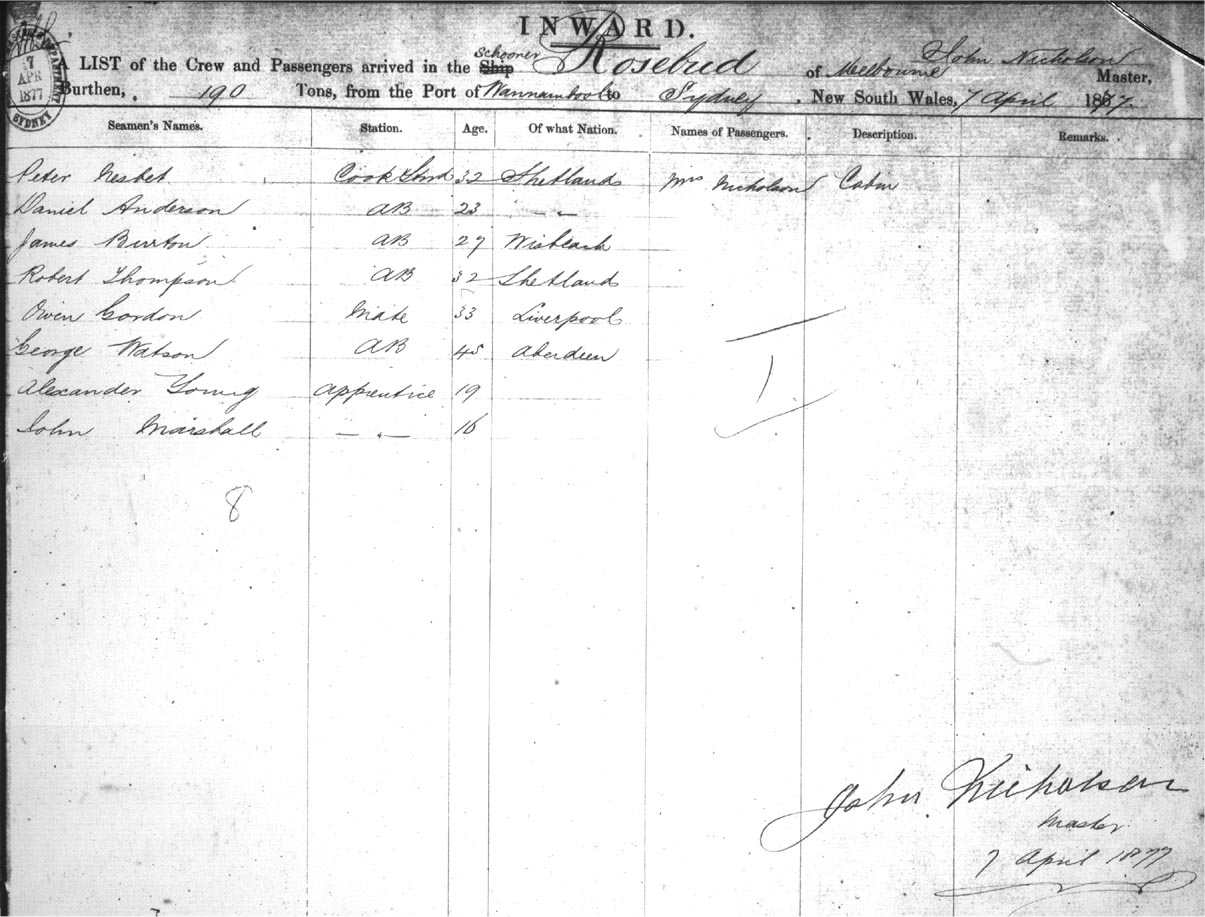 INWARD.
A LIST of the Crew and Passengers arrived in the Ship Schooner Rosebud of Melbourne John Nicholson Master,
Burthen, 190 Tons, from the Port of Warrnambool to Sydney, New South Wales, 7 April 1877.
Seamen's Names. Station. Age. Of what Nation. Names of Passengers. Description. Remarks.
Peter Nesbet Cook & Stwd 32 Shetlands Mrs Nicholson Cabin
Daniel Anderson AB 23 — " —
James Burton AB 27 Wisbeach
Robert Thompson AB 32 Shetlands
Owen Gordon Mate 33 Liverpool
George Watson AB 45 Aberdeen
Alexander Young Apprentice 19
John Marshall — " — 16
1
8
John Nicholson
Master
7 April 1877
7
APR
1877
SYDNEY